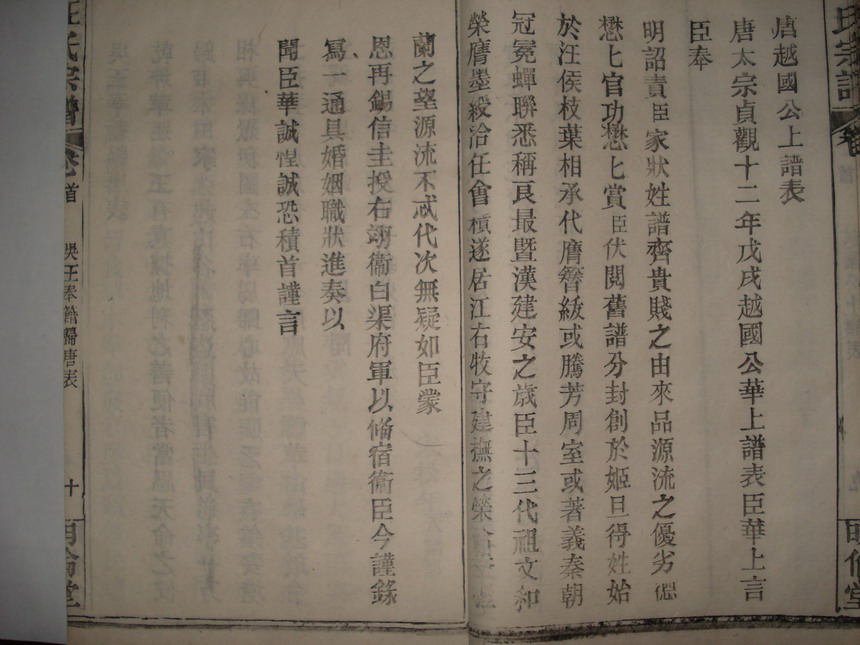 氏宗譜 卷首
唐越國公上譜表
唐太宗貞觀十二年戊戌越國公華上譜表臣華上言
臣奉
明詔責臣家狀姓譜齊貴賤之由來品源流之優劣
懋匕官功懋匕賞臣伏閱舊譜分封創於姬旦得姓始
於汪侯枝葉相承代膺簪紱或騰芳周室或著義秦朝
冠冕蟬聯悉稱良最暨漢建安之歲臣十三代祖文和
榮膺墨綬洽任會稽遂居江右牧守建撫之榮
蘭之望源流不忒代次無疑如臣蒙
恩再錫信圭授右翊衞白渠府軍以俻宿衞臣今謹錄
寫一通具婚姻職狀進奏以
聞臣華誠惶誠恐積首謹言
汪氏宗譜 卷首 吳王奉籍歸唐表 十